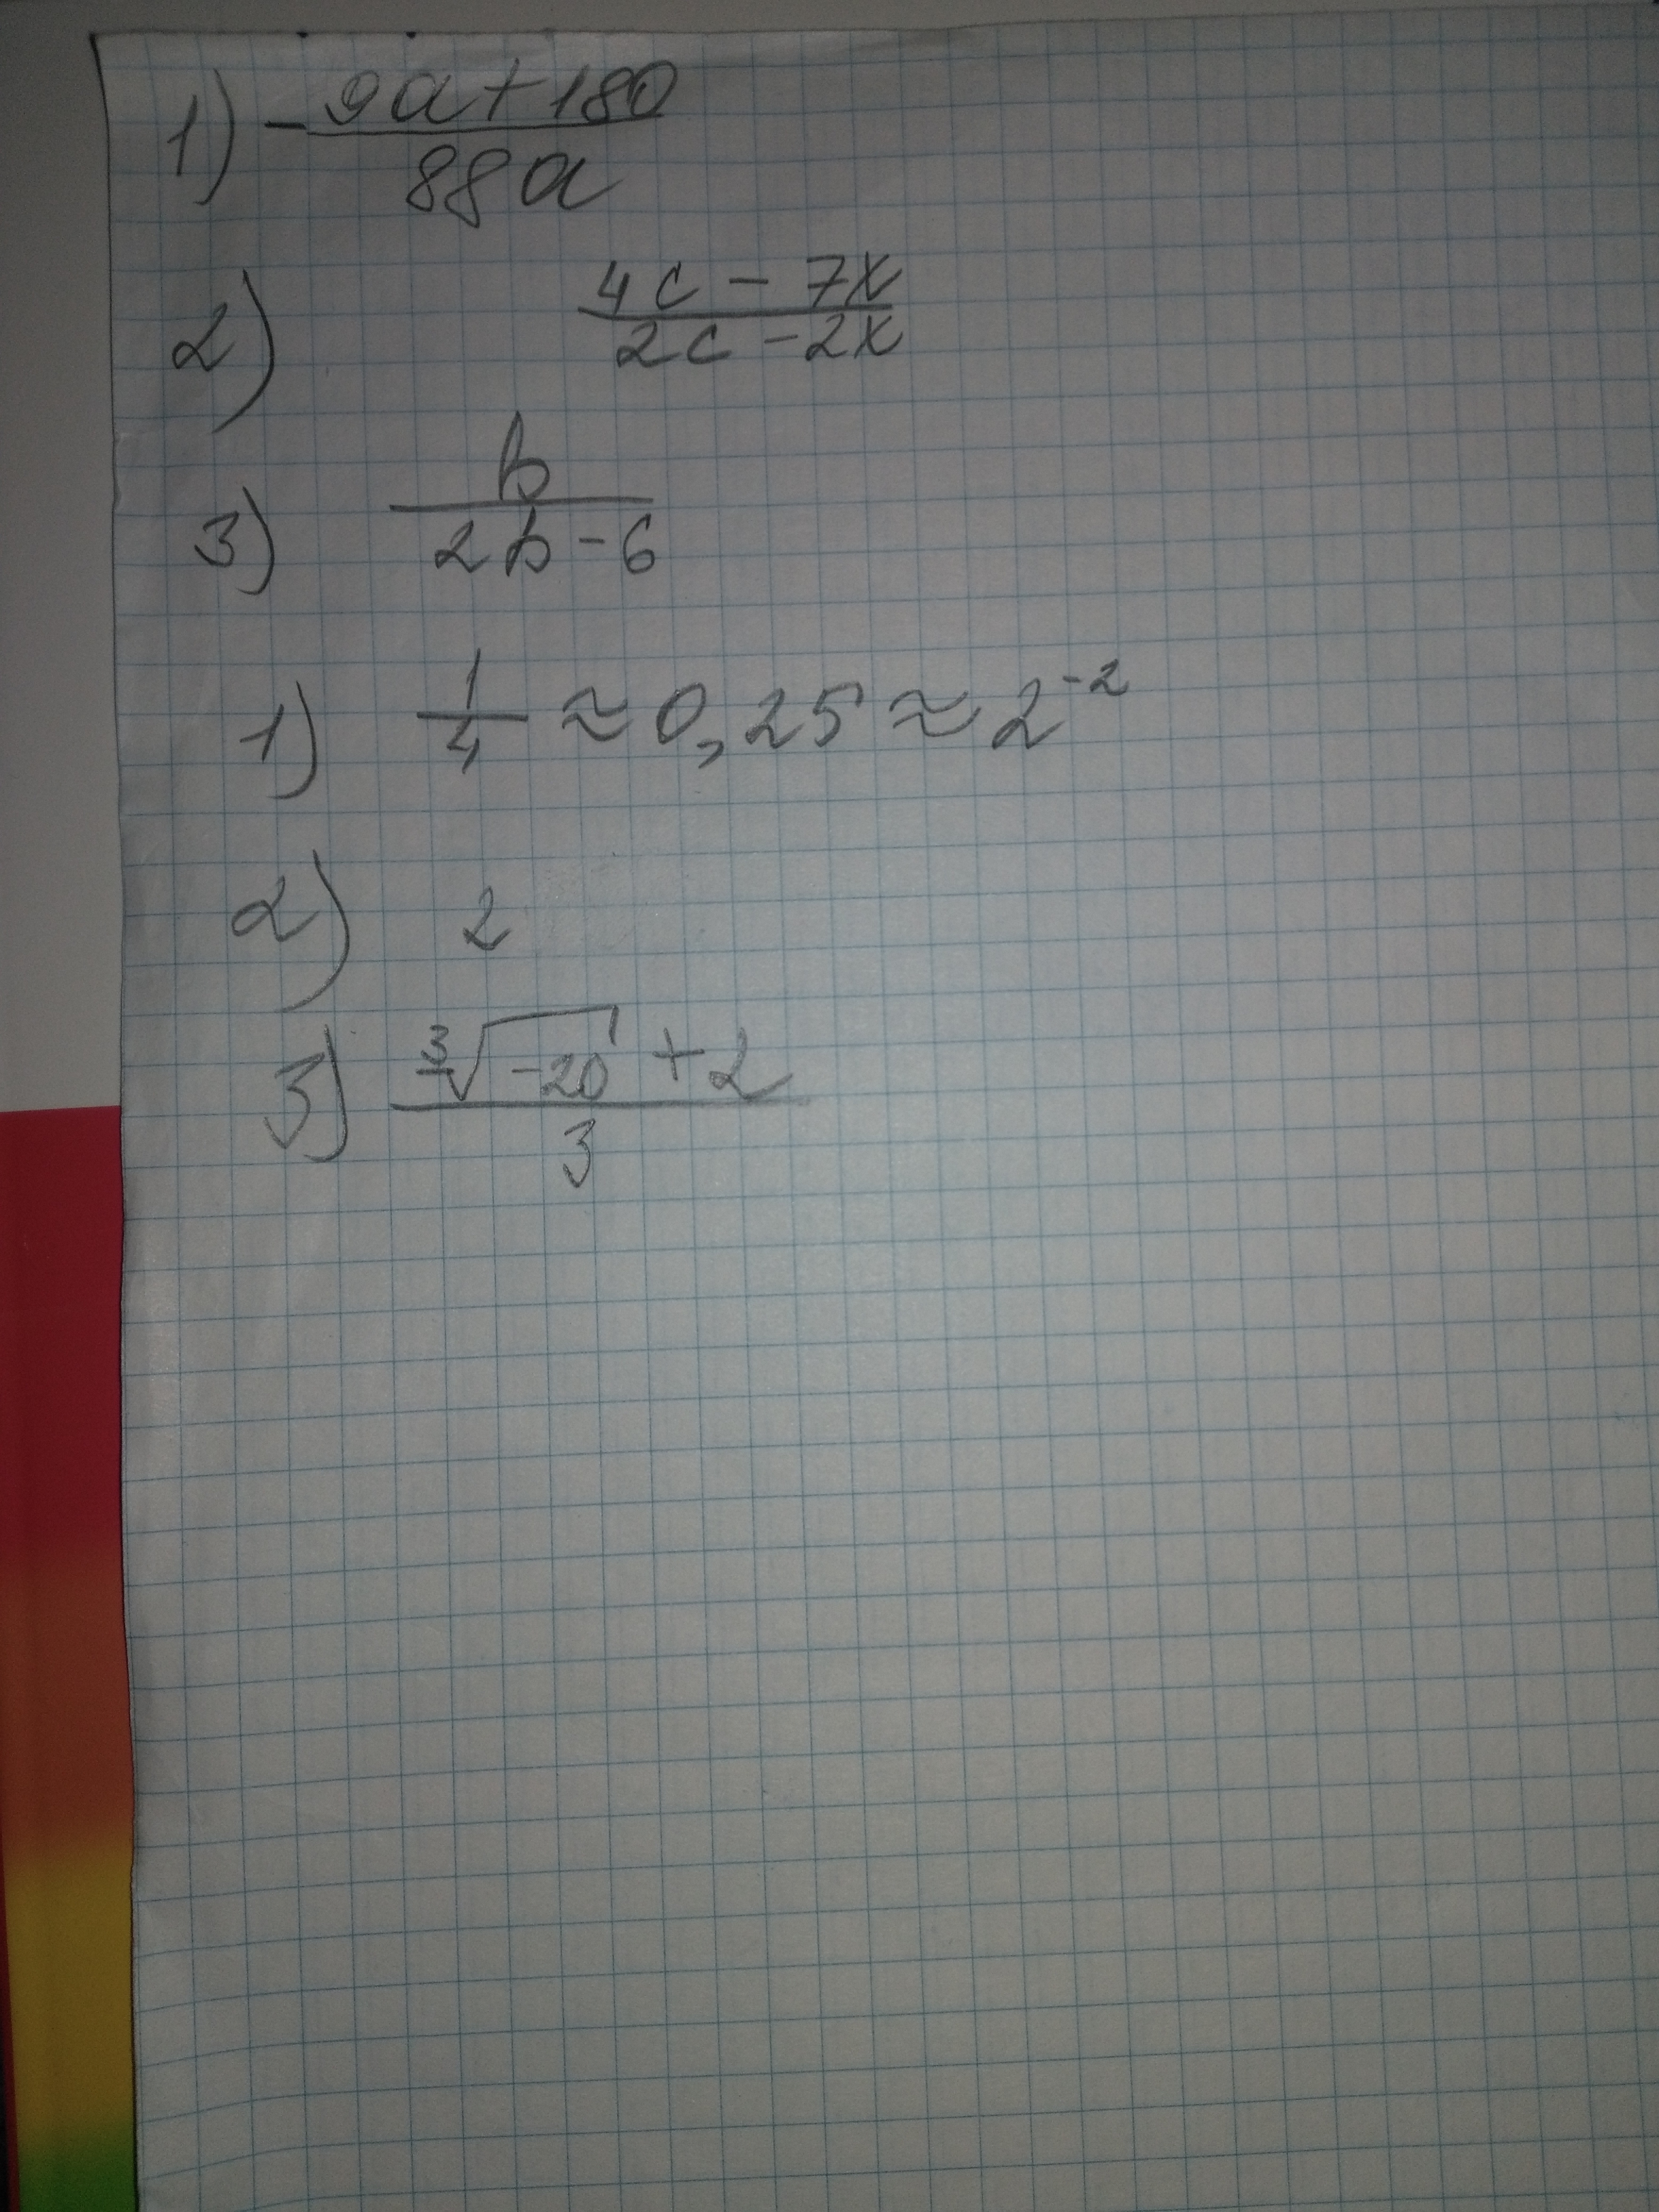 1) -(9a+180)/(88a)
2) (4c-7x)/(2c-2x)
3) b/(2b-6)
1) 1/4 ≈ 0,25 ≈ 2^-2
2) 2
3) (∛(-20) + 2)/3